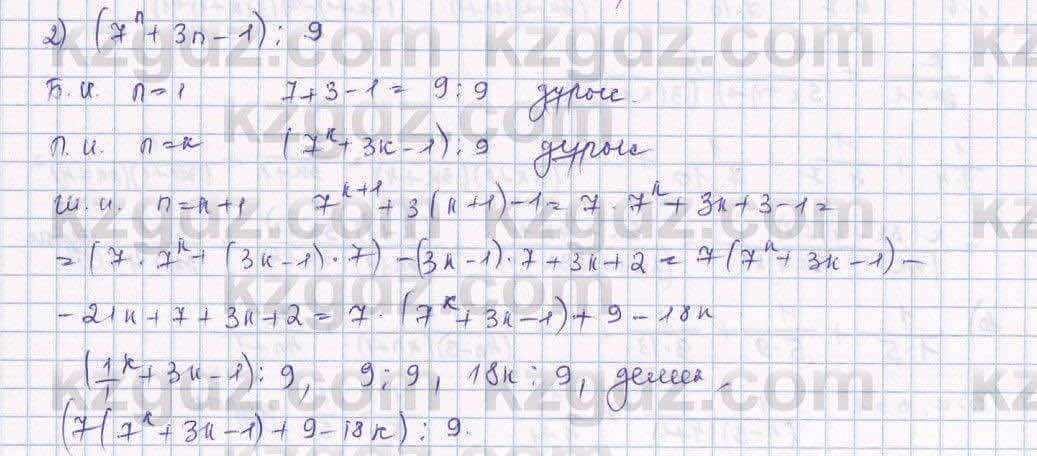 2) (7ⁿ + 3n - 1) ⋮ 9
Б.И. n = 1 7 + 3 - 1 = 9 ⋮ 9 дұрыс.
П.И. n = k (7ᵏ + 3k - 1) ⋮ 9 дұрыс
Ш.И. n = k + 1 7ᵏ⁺¹ + 3(k + 1) - 1 = 7 · 7ᵏ + 3k + 3 - 1 =
= (7 · 7ᵏ + (3k - 1) · 7) - (3k - 1) · 7 + 3k + 2 = 7(7ᵏ + 3k - 1) -
- 21k + 7 + 3k + 2 = 7 · (7ᵏ + 3k - 1) + 9 - 18k
(7ᵏ + 3k - 1) ⋮ 9, 9 ⋮ 9, 18k ⋮ 9, демек,
(7(7ᵏ + 3k - 1) + 9 - 18k) ⋮ 9.
kzgdz.com